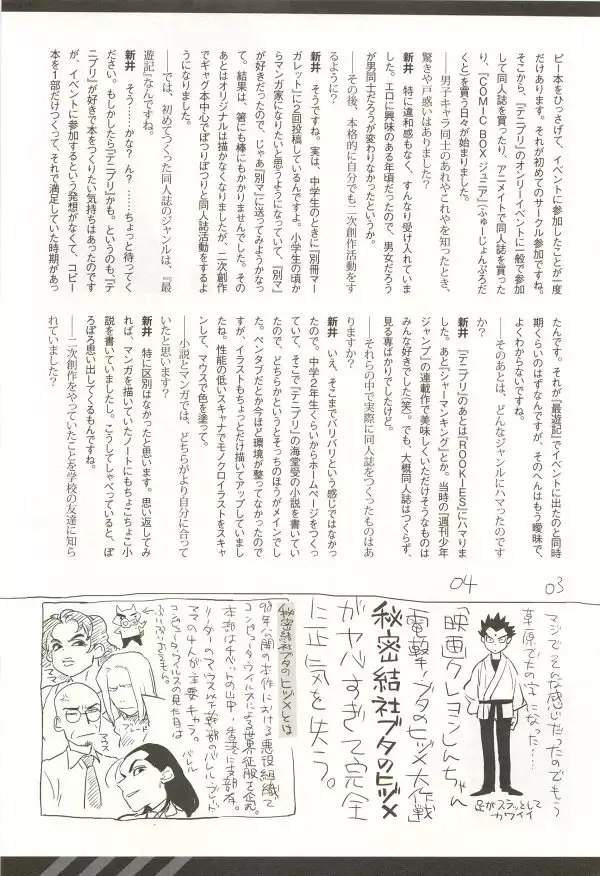 ピー本をひっさげて、イベントに参加したことが一度
だけあります。それが初めてのサークル参加ですね。
そこから、『テニプリ』のオンリーイベントに一般で参加
して同人誌を買ったり、アニメイトで同人誌を買った
り、『COMIC BOX ジュニア』（ふゅーじょんぷろだ
くと）を買う日々が始まりました。
――男子キャラ同士のあれやこれやを知ったとき、
驚きや戸惑いはありました？
新井　特に違和感もなく、すんなり受け入れていま
した。エロに興味のある年頃だったので、男女だろう
が男同士だろうが変わりなかったというか。
――その後、本格的に自分でも二次創作活動をす
るように？
新井　そうですね。実は、中学生のときに『別冊マー
ガレット』に2回投稿しているんですよ。小学生の頃か
らマンガ家になりたいと思うようになっていて、『別マ』
が好きだったので、じゃあ『別マ』に送ってみようかなっ
て。結果は、箸にも棒にもかかりませんでした。その
あとはオリジナルは描かなくなりましたが、二次創作
でギャグ本中心でぽつりぽつりと同人誌活動をするよ
うになりました。
――では、初めてつくった同人誌のジャンルは、『最
遊記』なんですね。
新井　そう……かな？ ん？……ちょっと待ってく
ださい。もしかしたら『テニプリ』かも。というのも、『テ
ニプリ』が好きで本をつくりたい気持ちはあったのです
が、イベントに参加するという発想がなくて、コピー
本を1部だけつくって、それで満足していた時期があっ
たんです。それが『最遊記』でイベントに出たのと同時
期くらいのはずなんですが、そのへんはもう曖昧で、
よくわからないですね。
――そのあとは、どんなジャンルにハマったのです
か？
新井　『テニプリ』のあとは『ROOKIES』にハマりま
した。あと『シャーマンキング』とか。当時の『週刊少年
ジャンプ』の連載作で美味しくいただけそうなものは
みんな好きでした（笑）。でも、大概同人誌はつくらず、
見る専ばかりでしたけど。
――それらの中で実際に同人誌をつくったものはあ
りますか？
新井　いえ、そこまでバリバリという感じではなかっ
たので。中学2年生くらいからホームページをつくっ
ていて、そこで『テニプリ』の海堂受の小説を書いてい
たので、どちらかというとそっちのほうがメインでし
た。ペンタブだとか今ほど環境が整ってなかったので
すが、イラストもちょっとだけ描いてアップしていまし
たね。性能の低いスキャナでモノクロイラストをスキャ
ンして、マウスで色を塗って。
――小説とマンガでは、どちらがより自分に合って
いたと思います？
新井　特に区別はなかったと思います。思い返してみ
れば、マンガを描いていたノートにもちょこちょこ小
説を書いていましたし。こうしてしゃべっていると、ぽ
ろぽろ思い出してくるもんですね。
――二次創作をやっていたことを学校の友達に知ら
れていました？
03
マジでそんな感じだったのでもう
草原で大の字になった……
足がスラッとして
カワイイ
04
「映画クレヨンしんちゃん
電撃！ブタのヒヅメ大作戦」
秘密結社ブタのヒヅメ
がヤバすぎて完全
に正気を失う。
秘密結社ブタのヒヅメとは
98年公開の本作における悪役組織で
コンピュータウイルスによる世界征服を企む。
本部はチベットの山中！
リーダーのマウス以下幹部のバレル・ブレード
ママの4人が主要キャラ。
コンピュータウイルスの見た目は
ぶりぶりざえもん。
マウス
ブレード
バレル